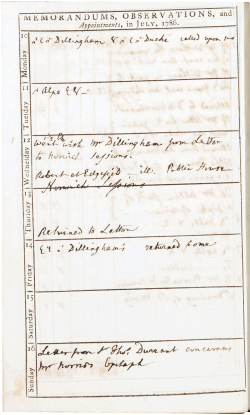 MEMORANDUMS, OBSERVATIONS, and
Appointments, in JULY, 1786.
10 Monday
Dillingham & Duche called upon
11 Tuesday
12 Wednesday
12th
went with Mr Dillingham from Letton
to Norwich Sessions.
Robert at ill. Public House
13 Thursday
Norwich Sessions
Returned to Letton
14 Friday
Dillingham's returned home
15 Saturday
16 Sunday
Letter from Thos. Durrant concerning
Mr Norris's Epitaph